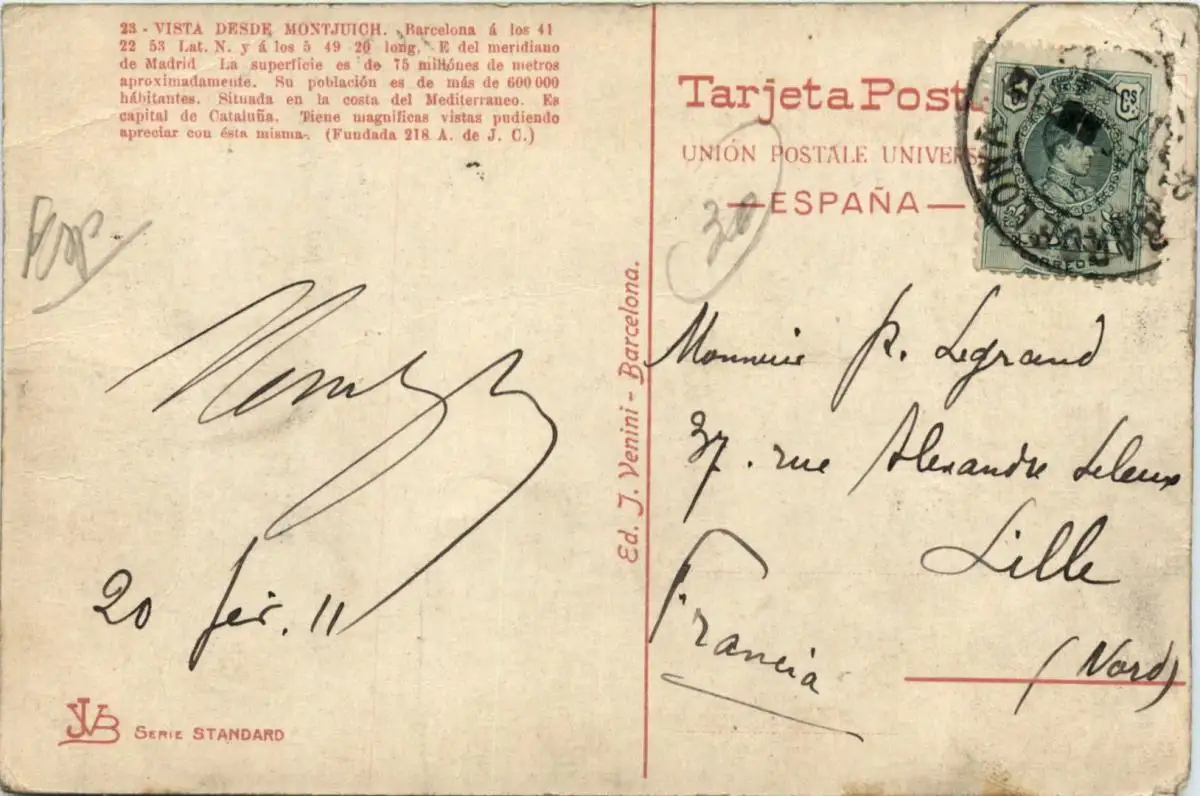 23 - VISTA DESDE MONTJUICH. Barcelona á los 41
22 53 Lat. N. y á los 5 49 20 long. E del meridiano
de Madrid La superficie es de 75 millónes de metros
aproximadamente. Su población es de más de 600 000
hábitantes. Situada en la costa del Mediterraneo. Es
capital de Cataluña. Tiene magnificas vistas pudiendo
apreciar con ésta misma. (Fundada 218 A. de J. C.)
20 fév. 11
JVB
SERIE STANDARD
Ed. J. Venini - Barcelona.
Tarjeta Post
UNIÓN POSTALE UNIVERS
—ESPAÑA—
30
Cs.
CORREOS
BARCELONA
Monsieur P. Legrand
37. rue Alexandre Leleux
Lille
(Nord)
Francia